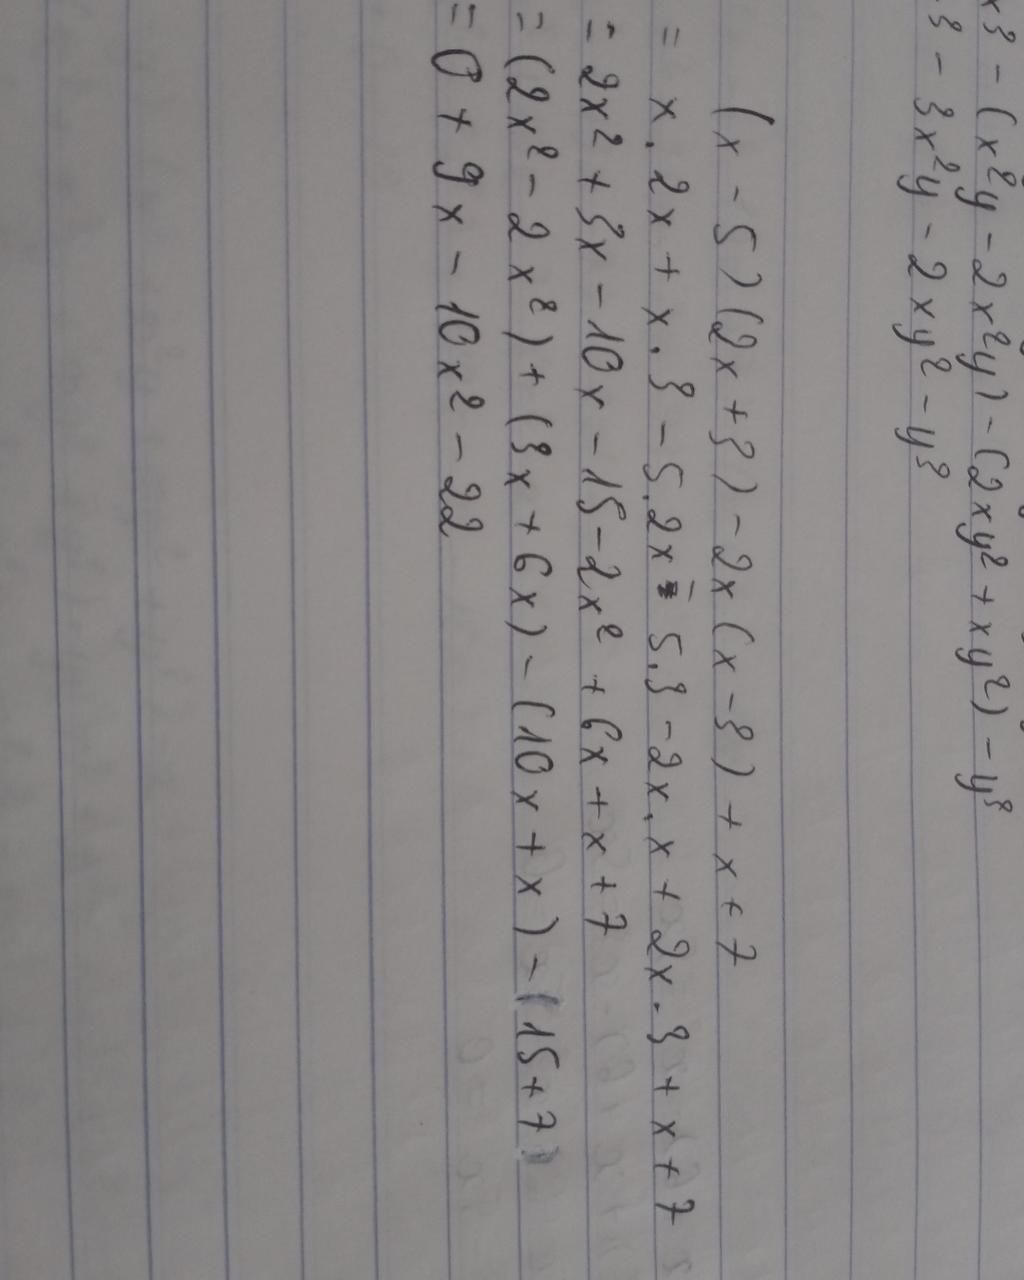 x³ - (x²y - 2x²y) - (2xy² + xy²) - y³
3 - 3x²y - 2xy² - y³
(x - 5)(2x + 3) - 2x(x - 3) + x + 7
= x.2x + x.3 - 5.2x - 5.3 - 2x.x + 2x.3 + x + 7
= 2x² + 3x - 10x - 15 - 2x² + 6x + x + 7
= (2x² - 2x²) + (3x + 6x) - (10x + x) - (15 + 7)
= 0 + 9x - 10x² - 22